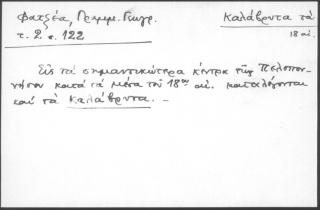 Φατζέα, Γραμμ. Γεωγρ. Καλάβρυτα τά
τ. 2 σ. 122 18 αἰ.
Εἰς τά σημαντικώτερα κέντρα τῆς Πελοπον-
νήσου κατά τά μέσα τοῦ 18ου αἰ. καταλέγονται
καί τά Καλάβρυτα. —